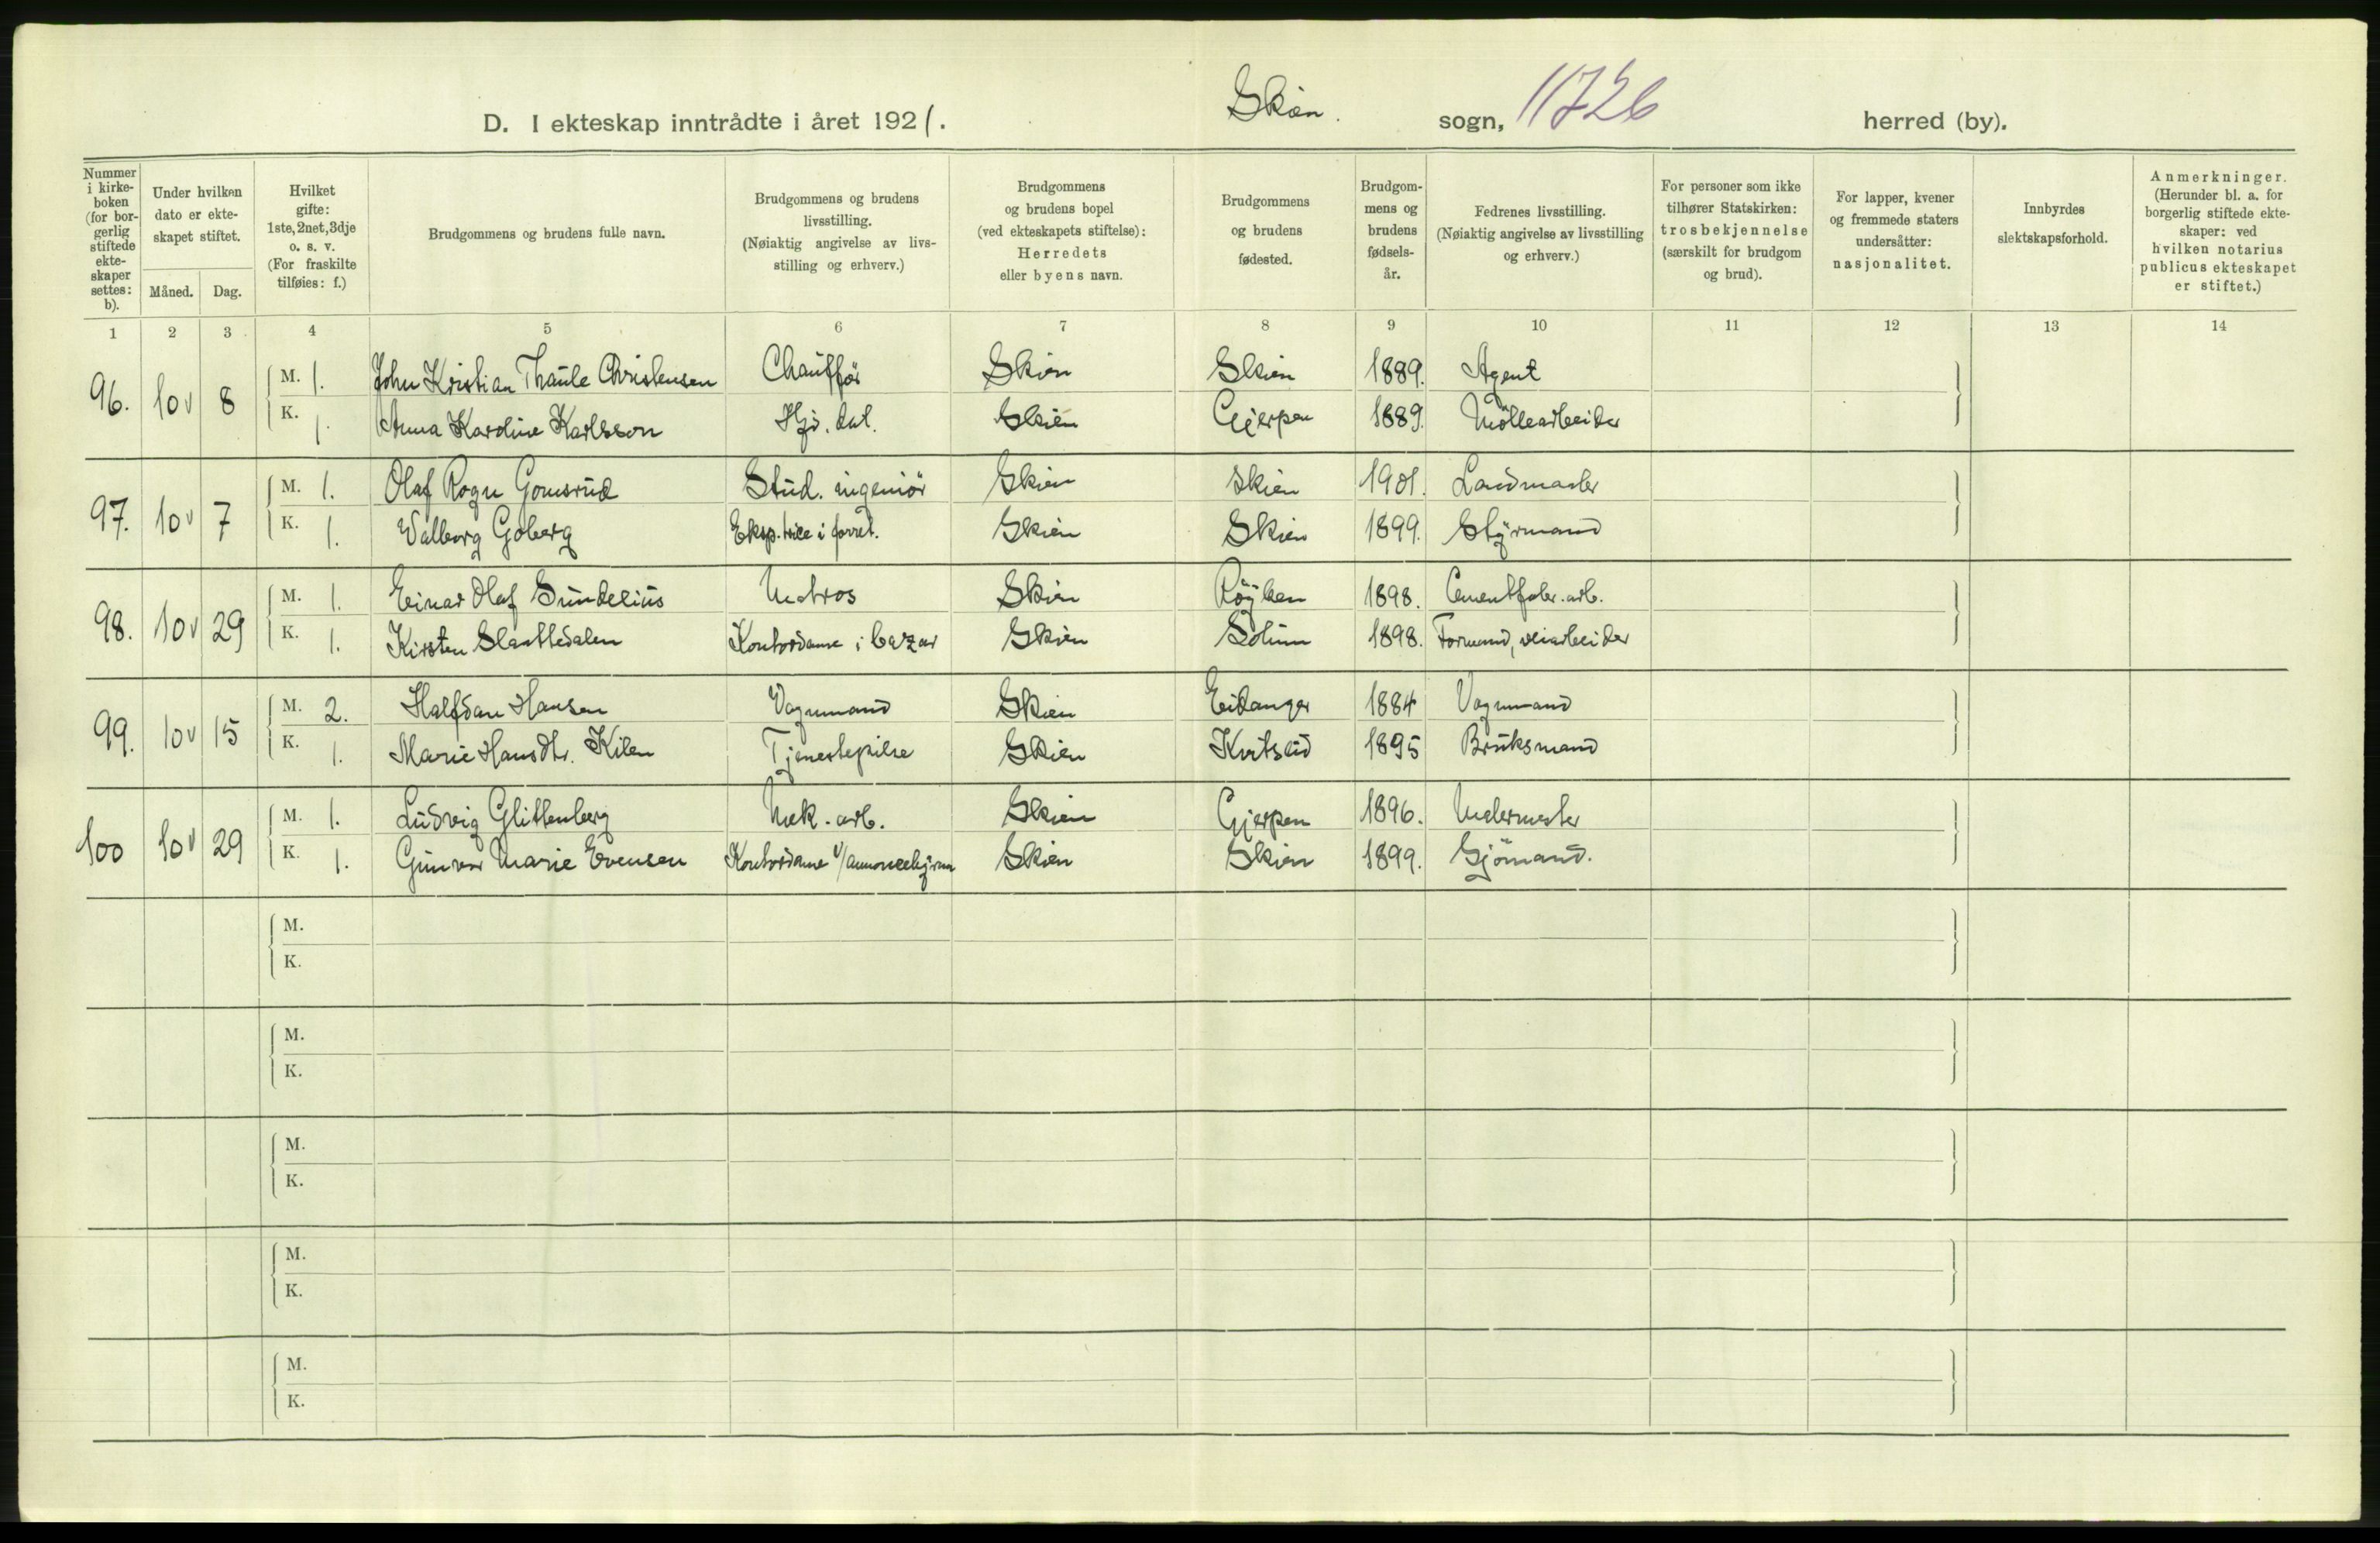 D. I ekteskap inntrådte i året 1921. Skien. sogn, 11726 herred (by).
Nummer i kirkeboken (for borgerlig stiftede ekteskaper settes: b).
Under hvilken dato er ekteskapet stiftet.
Måned. Dag.
Hvilket gifte: 1ste, 2net, 3dje o. s. v. (For fraskilte tilføies: f.)
Brudgommens og brudens fulle navn.
Brudgommens og brudens livsstilling. (Nøiaktig angivelse av livsstilling og erhverv.)
Brudgommens og brudens bopel (ved ekteskapets stiftelse): Herredets eller byens navn.
Brudgommens og brudens fødested.
Brudgommens og brudens fødselsår.
Fedrenes livsstilling. (Nøiaktig angivelse av livsstilling og erhverv.)
For personer som ikke tilhører Statskirken: trosbekjennelse (særskilt for brudgom og brud).
For lapper, kvener og fremmede staters undersåtter: nasjonalitet.
Innbyrdes slektskapsforhold.
Anmerkninger. (Herunder bl. a. for borgerlig stiftede ekteskaper: ved hvilken notarius publicus ekteskapet er stiftet.)
1 2 3 4 5 6 7 8 9 10 11 12 13 14
96. 10 8 M. 1. John Kristian Thaule Christensen Chauffør Skien Skien 1889. Agent
K. 1. Anna Karoline Karlsson Hj. dat. Skien Gjerpen 1889. Möllearbeider
97. 10 7 M. 1. Olaf Rogn Gomsrud Stud. ingeniör Skien Skien 1901. Landmaaler
K. 1. Valborg Goberg Eksp.trice i forret. Skien Skien 1899. Styrmand
98. 10 29 M. 1. Einar Olaf Sundelius Matros Skien Röyken 1898. Cementfabr. arb.
K. 1. Kirsten Slaattedalen Kontordame i bazar Skien Solum 1898. Formand, veiarbeider
99. 10 15 M. 2. Halfdan Hansen Vognmand Skien Eidanger 1884 Vognmand
K. 1. Marie Hansdtr. Kilen Tjenestepike Skien Kvitseid 1895 Bruksmand
100 10 29 M. 1. Ludvig Glittenberg Mek. arb. Skien Gjerpen 1896. Malermester
K. 1. Gunvor Marie Evensen Kontordame v/ Skien Skien 1899. Sjömand.
M.
K.
M.
K.
M.
K.
M.
K.
M.
K.